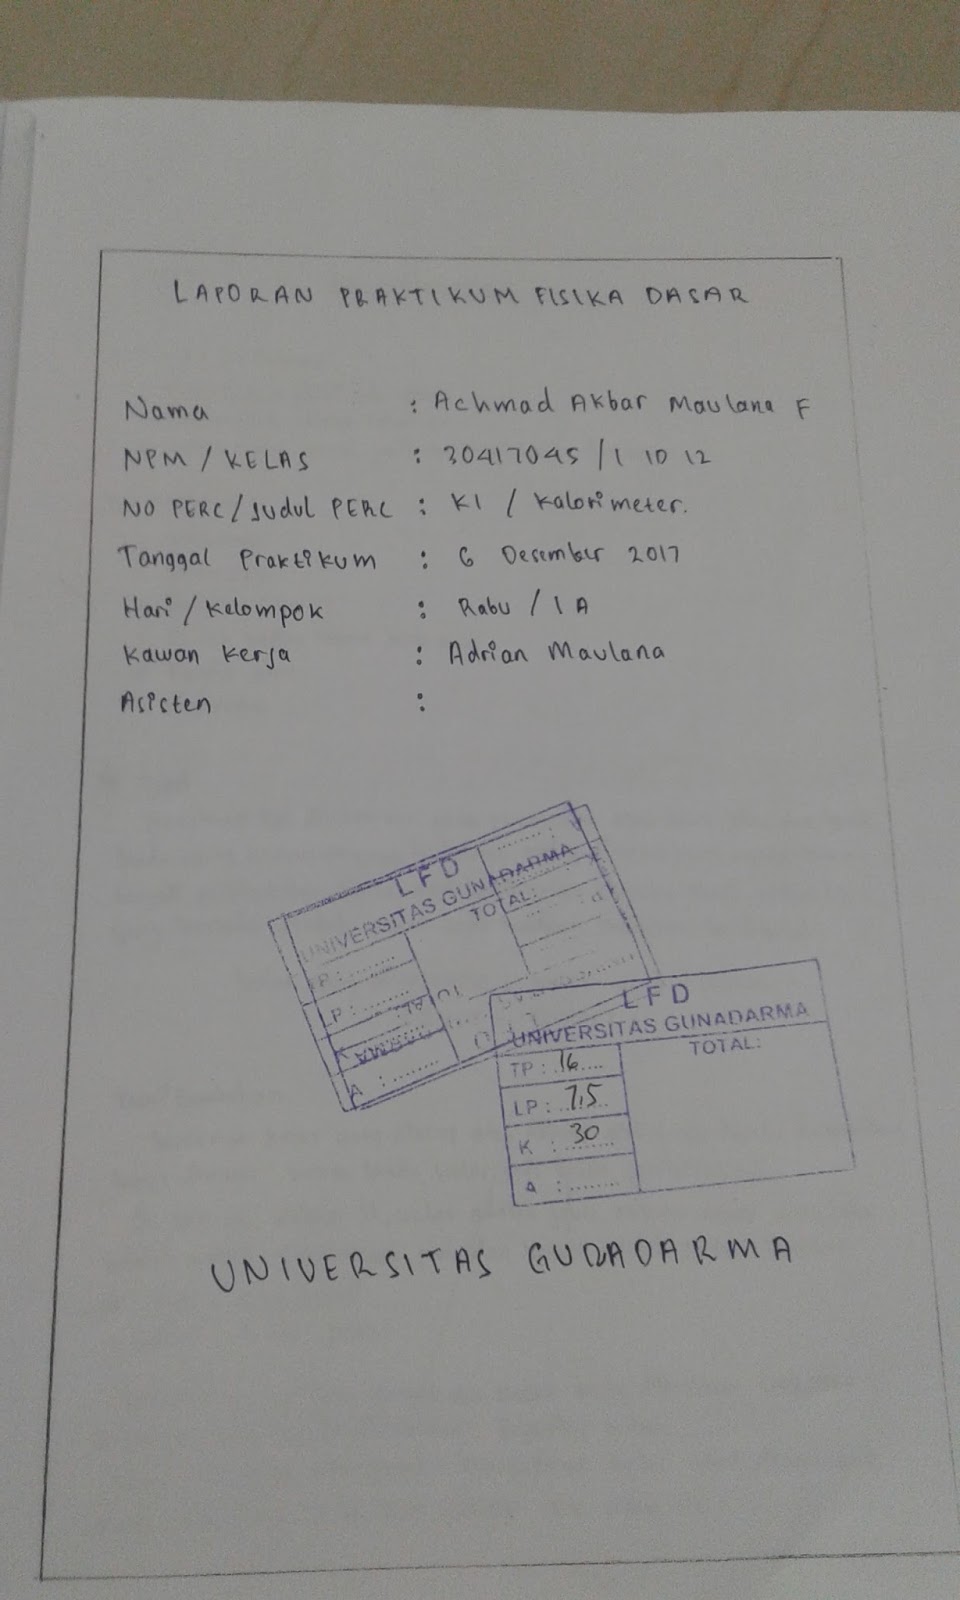 LAPORAN PRAKTIKUM FISIKA DASAR
Nama : Achmad Akbar Maulana F
NPM / KELAS : 30417045 / 1 ID 12
NO PERC / Judul PERC : K1 / Kalorimeter.
Tanggal Praktikum : 6 Desember 2017
Hari / Kelompok : Rabu / 1 A
Kawan Kerja : Adrian Maulana
Asisten :
LFD
UNIVERSITAS GUNADARMA
TOTAL:
P : ........
LP : ........
A : ........
LFD
UNIVERSITAS GUNADARMA
TOTAL:
TP : 16
LP : 7,5
K : 30
A : ........
UNIVERSITAS GUNADARMA